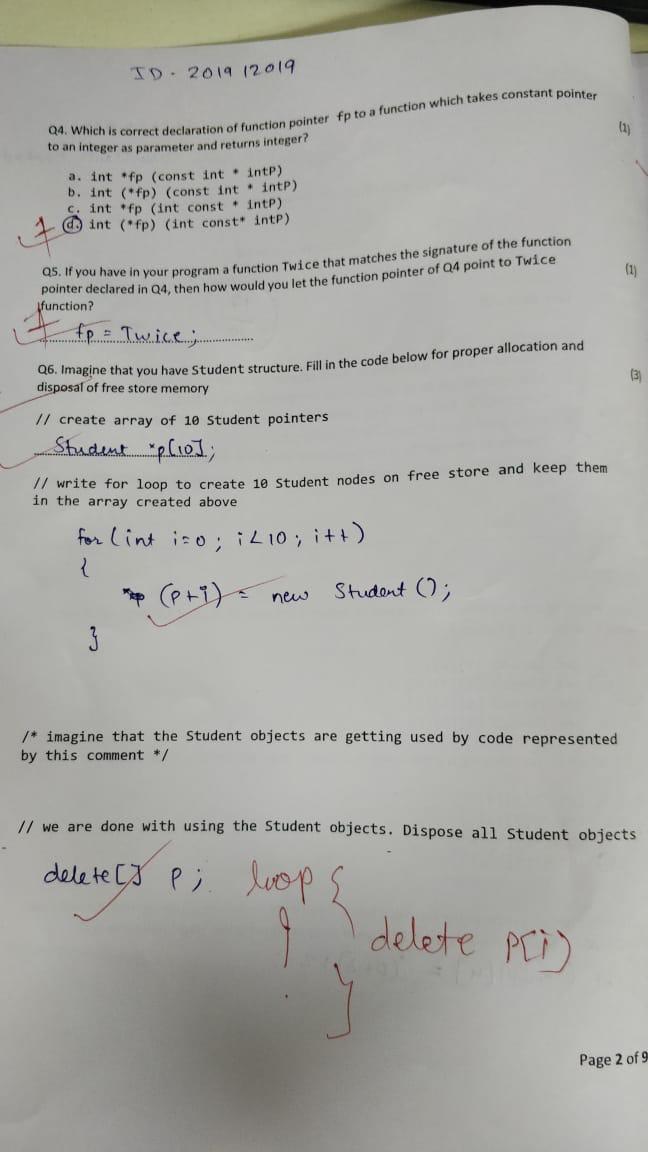 ID - 201912019
Q4. Which is correct declaration of function pointer fp to a function which takes constant pointer
to an integer as parameter and returns integer?
(1)
a. int *fp (const int * intP)
b. int (*fp) (const int * intP)
c. int *fp (int const * intP)
d. int (*fp) (int const* intP)
Q5. If you have in your program a function Twice that matches the signature of the function
pointer declared in Q4, then how would you let the function pointer of Q4 point to Twice
function?
(1)
fp = Twice;
Q6. Imagine that you have Student structure. Fill in the code below for proper allocation and
disposal of free store memory
(3)
// create array of 10 Student pointers
Student *p[10];
// write for loop to create 10 Student nodes on free store and keep them
in the array created above
for (int i=0; i<10; i++)
{
(p+i) = new Student ();
}
/* imagine that the Student objects are getting used by code represented
by this comment */
// we are done with using the Student objects. Dispose all Student objects
delete[] p; loop {
delete p[i]
}
Page 2 of 9